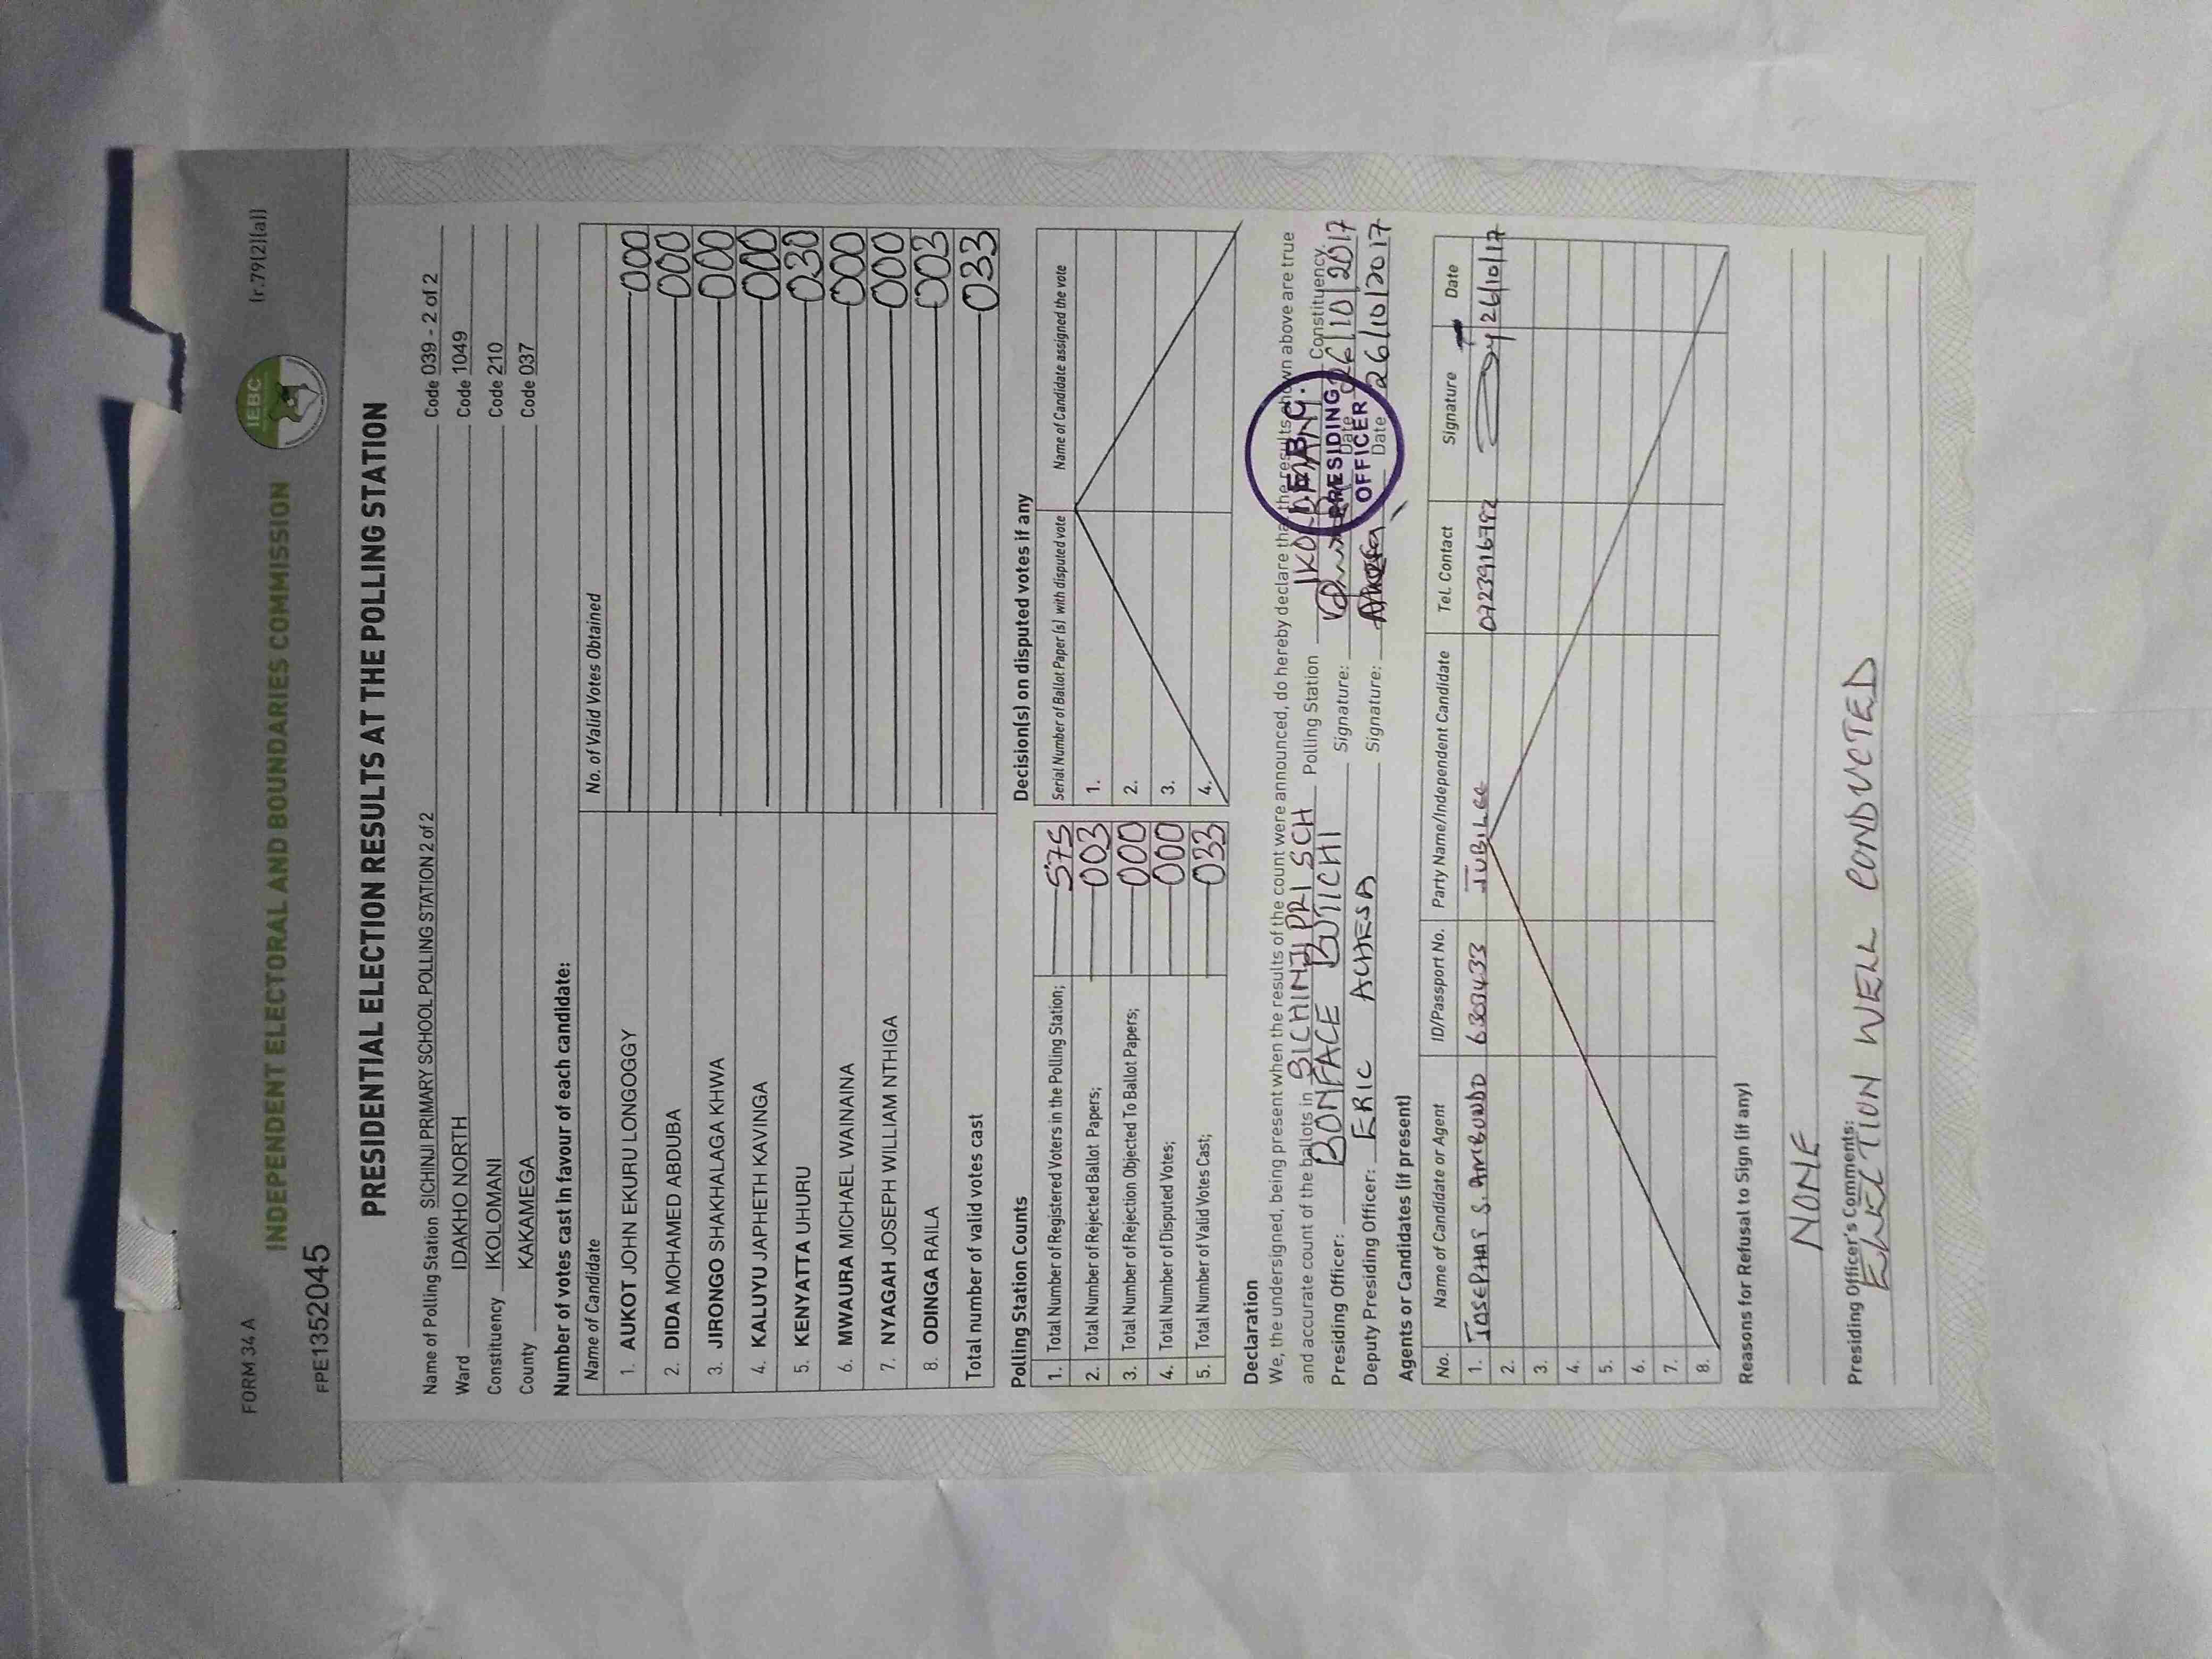 FORM 34 A
(r.79(2)(a))
IEBC
INDEPENDENT ELECTORAL AND BOUNDARIES COMMISSION
FPE1352045
PRESIDENTIAL ELECTION RESULTS AT THE POLLING STATION
Name of Polling Station SICHINJI PRIMARY SCHOOL POLLING STATION 2 of 2 Code 039 - 2 of 2
Ward IDAKHO NORTH Code 1049
Constituency IKOLOMANI Code 210
County KAKAMEGA Code 037
Number of votes cast in favour of each candidate:
Name of Candidate No. of Valid Votes Obtained
1. AUKOT JOHN EKURU LONGOGGY 000
2. DIDA MOHAMED ABDUBA 000
3. JIRONGO SHAKHALAGA KHWA 000
4. KALUYU JAPHETH KAVINGA 000
5. KENYATTA UHURU 030
6. MWAURA MICHAEL WAINAINA 000
7. NYAGAH JOSEPH WILLIAM NTHIGA 000
8. ODINGA RAILA 003
Total number of valid votes cast 033
Polling Station Counts
1. Total Number of Registered Voters in the Polling Station; 575
2. Total Number of Rejected Ballot Papers; 003
3. Total Number of Rejection Objected To Ballot Papers; 000
4. Total Number of Disputed Votes; 000
5. Total Number of Valid Votes Cast; 033
Decision(s) on disputed votes if any
Serial Number of Ballot Paper (s) with disputed vote Name of Candidate assigned the vote
1.
2.
3.
4.
Declaration
We, the undersigned, being present when the results of the count were announced, do hereby declare that the results shown above are true
and accurate count of the ballots in SICHINJI PRI SCH Polling Station Constituency.
Presiding Officer: BONFACE BUTICHI Signature: Date 26/10/2017
Deputy Presiding Officer: ERIC ACHESA Signature: Date 26/10/2017
PRESIDING
OFFICER
Agents or Candidates (if present)
No. Name of Candidate or Agent ID/Passport No. Party Name/Independent Candidate Tel. Contact Signature Date
1. JUBILEE 26/10/17
2.
3.
4.
5.
6.
7.
8.
Reasons for Refusal to Sign (if any)
NONE
Presiding Officer's Comments:
ELECTION WELL CONDUCTED